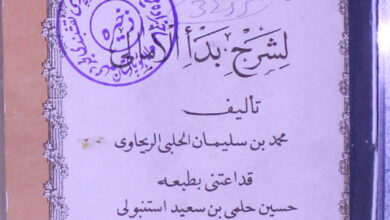 لشرح بدأ الأمالى
تأليف
محمد بن سليمان الحلبى الريحاوى
قد اعتنى بطبعه
حسين حلمى بن سعيد استنبولى